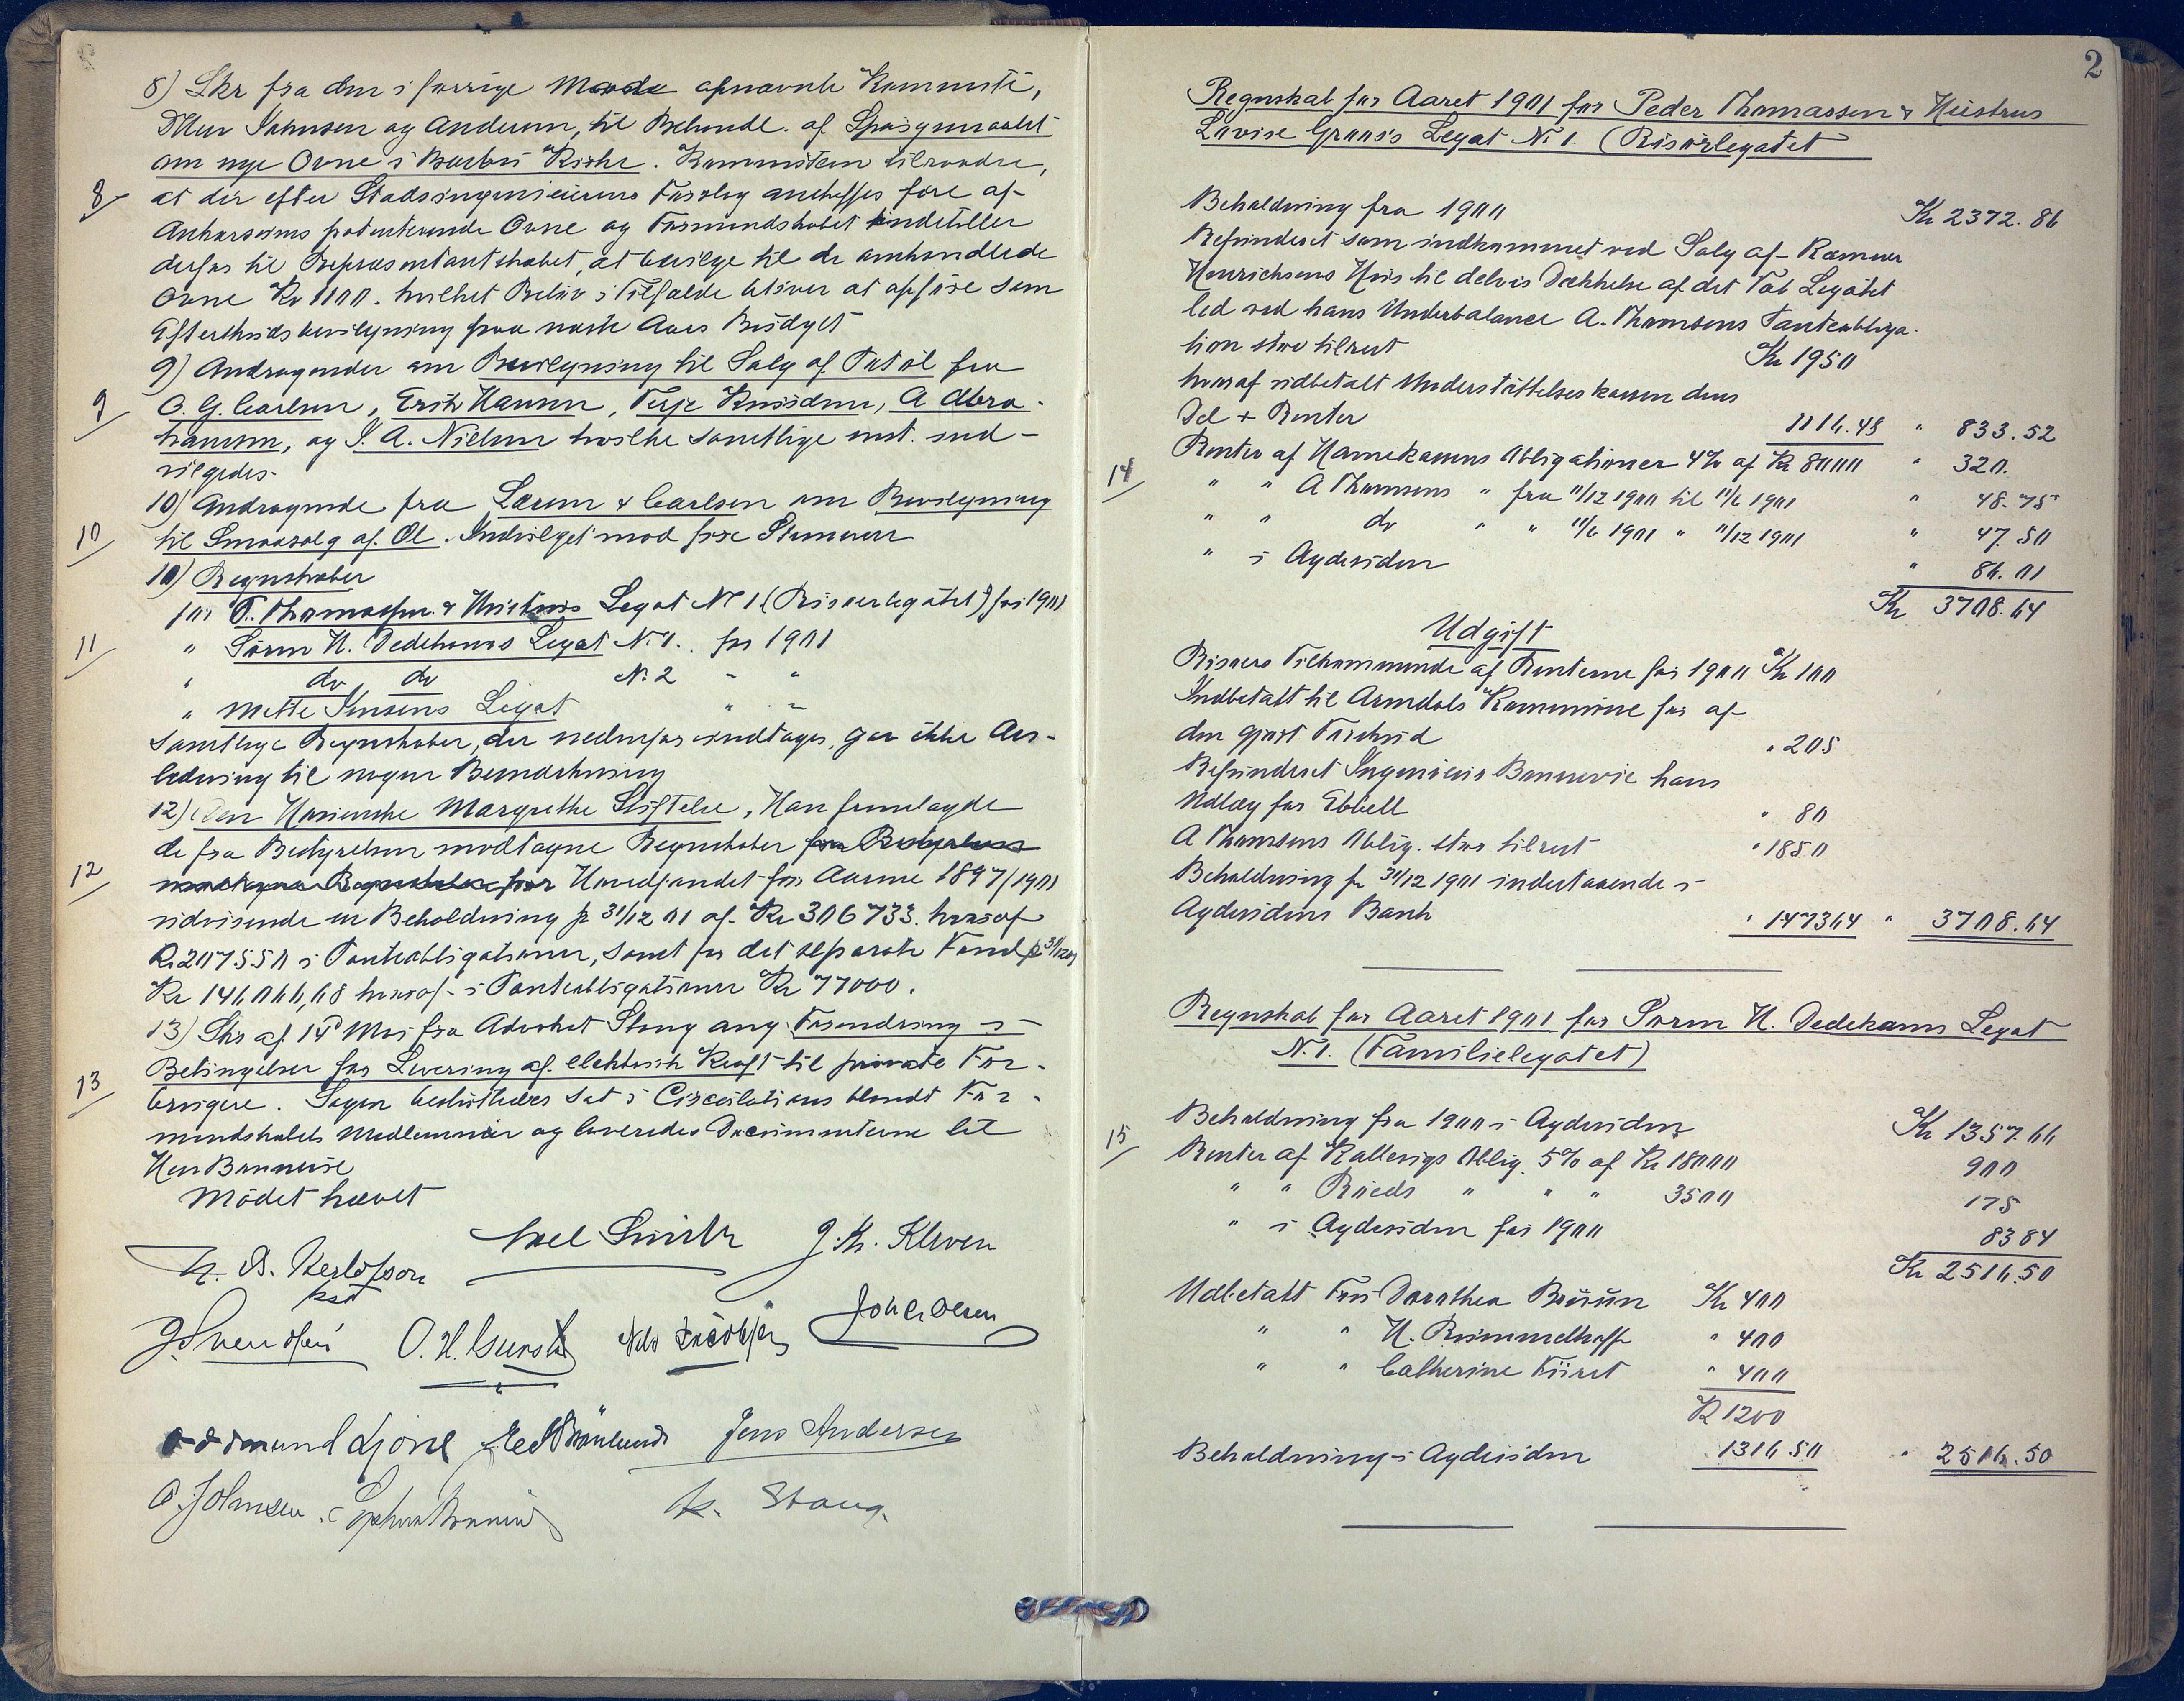 8) Skr fra den i forrige Møde opnævnte Kommité,
DHrr Johnsen og Andersen, til Behandl. af Spørgsmaalet
om nye Ovne i Barbu Kirke. Kommiteen tilraader,
8 at der efter Stadsingeniørens Forslag anskaffes fire af
patenterede Ovne og Formandskabet indstiller
derfor til Repræsentantskabet, at bevilge til de omhandlede
Ovne Kr 1100. hvilket Beløb i Tilfælde bliver at opføre som
Efterskudsbevilgning paa næste Aars Budget
9) Andragender om Bevilgning til Salg af Tatøl fra
9 O. G. Carlsen, Erik Hansen, Terje Knudsen, A Abra-
hamsen, og J. A. Nielsen hvilke samtlige enst. ind-
vilgedes.
10) Andragende fra Larsen & Carlsen om Bevilgning
10 til Smaasalg af Øl. Indvilget mod fire Stemmer
10) Regnskaber
for P. Thomassen & Hustrus Legat No 1 (Risørlegatet) for 1901
11 " Søren H. Dedekams Legat N. 1. for 1901
" do do N. 2 " "
" Mette Jensens Legat " "
Samtlige Regnskaber, der nedenfor indtages, gav ikke An-
ledning til nogen Bemærkning
12) Den Kallevigske Margrethe Stiftelse. Man fremlagde
de fra Bestyrelsen modtagne Regnskaber fra Bestyrelsen
12 modtagne Regnskaber for Hovedfondet for Aarene 1897/1901
udvisende en Beholdning pr 31/12 01 af Kr 306733. hvoraf
Kr 207550 i Panteobligationer, samt for det separate Fond pr 31/12 01
Kr 146066,68 hvoraf i Panteobligationer Kr 77000.
13) Skr af 15 Mai fra Advokat Stang ang. Forandring i
Betingelser for Levering af elektrisk Kraft til private For-
13 brugere. Sagen besluttedes sat i Circulation blandt For-
mandskabets Medlemmer og leveredes Documenterne til
Herr Bonnevie
Mødet hævet
Axel Smith J. Kr. Kleven
N. B. Herlofson
J. Svendsen O. H. Nils Jacobsen Joh Olsen
Oddmund Ljone Jens Andersen
O. Johnsen. K. Stang.
2
Regnskab for Aaret 1901 for Peder Thomassen & Hustrus
Lovise Graus's Legat N. 1. (Risørlegatet
Beholdning fra 1900 Kr 2372.86
Refunderet som indkommet ved Salg af Kæmner
Henrichsens Huus til delvis Dækkelse af det Tab Legatet
led ved hans Underbalance A. Thomsens Panteobliga-
tion stor tilrest Kr 1950
hvoraf udbetalt Understøttelseskassen dens
Del + Renter 1116.48 " 833.52
14 Renter af Havnekassens Obligationer 4% af Kr 8000 " 320.
" " A Thomsens " fra 11/12 1900 til 11/6 1901 " 48.75
" " do " " 11/6 1901 " 11/12 1901 " 47.50
" i Agdesiden " 86.01
Kr 3708.64
Udgift
Risørs Tilkommende af Renterne for 1900 Kr 100
Indbetalt til Arendals Kommune for af
den gjort Forskud " 205
Refunderet Ingeniør Bonnevie hans
Udlæg for Ebbell " 80
A Thomsens Oblig. stor tilrest " 1850
Beholdning pr 31/12 1901 indestaaende i
Agdesidens Bank " 1473 64 " 3708.64
Regnskab for Aaret 1901 for Søren H. Dedekams Legat
N. 1. (Familielegatet)
Beholdning fra 1900 i Agdesiden Kr 1357.66
15 Renter af Kallevigs Oblig. 5% af Kr 18000 900
" " Rueds " " " 3500 175
" i Agdesiden for 1901 83 84
Kr 2516.50
Udbetalt Fru Dorothea Bruun Kr 400
" " H. Rømmelhoff " 400
" " Catherine Fürst " 400
Kr 1200
Beholdning i Agdesiden 1316.50 " 2516.50